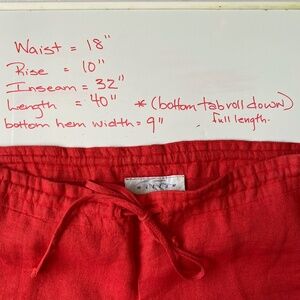 Waist = 18"
Rise = 10"
Inseam = 32"
Length = 40" * (bottom tab roll down)
bottom hem width = 9" . full length.